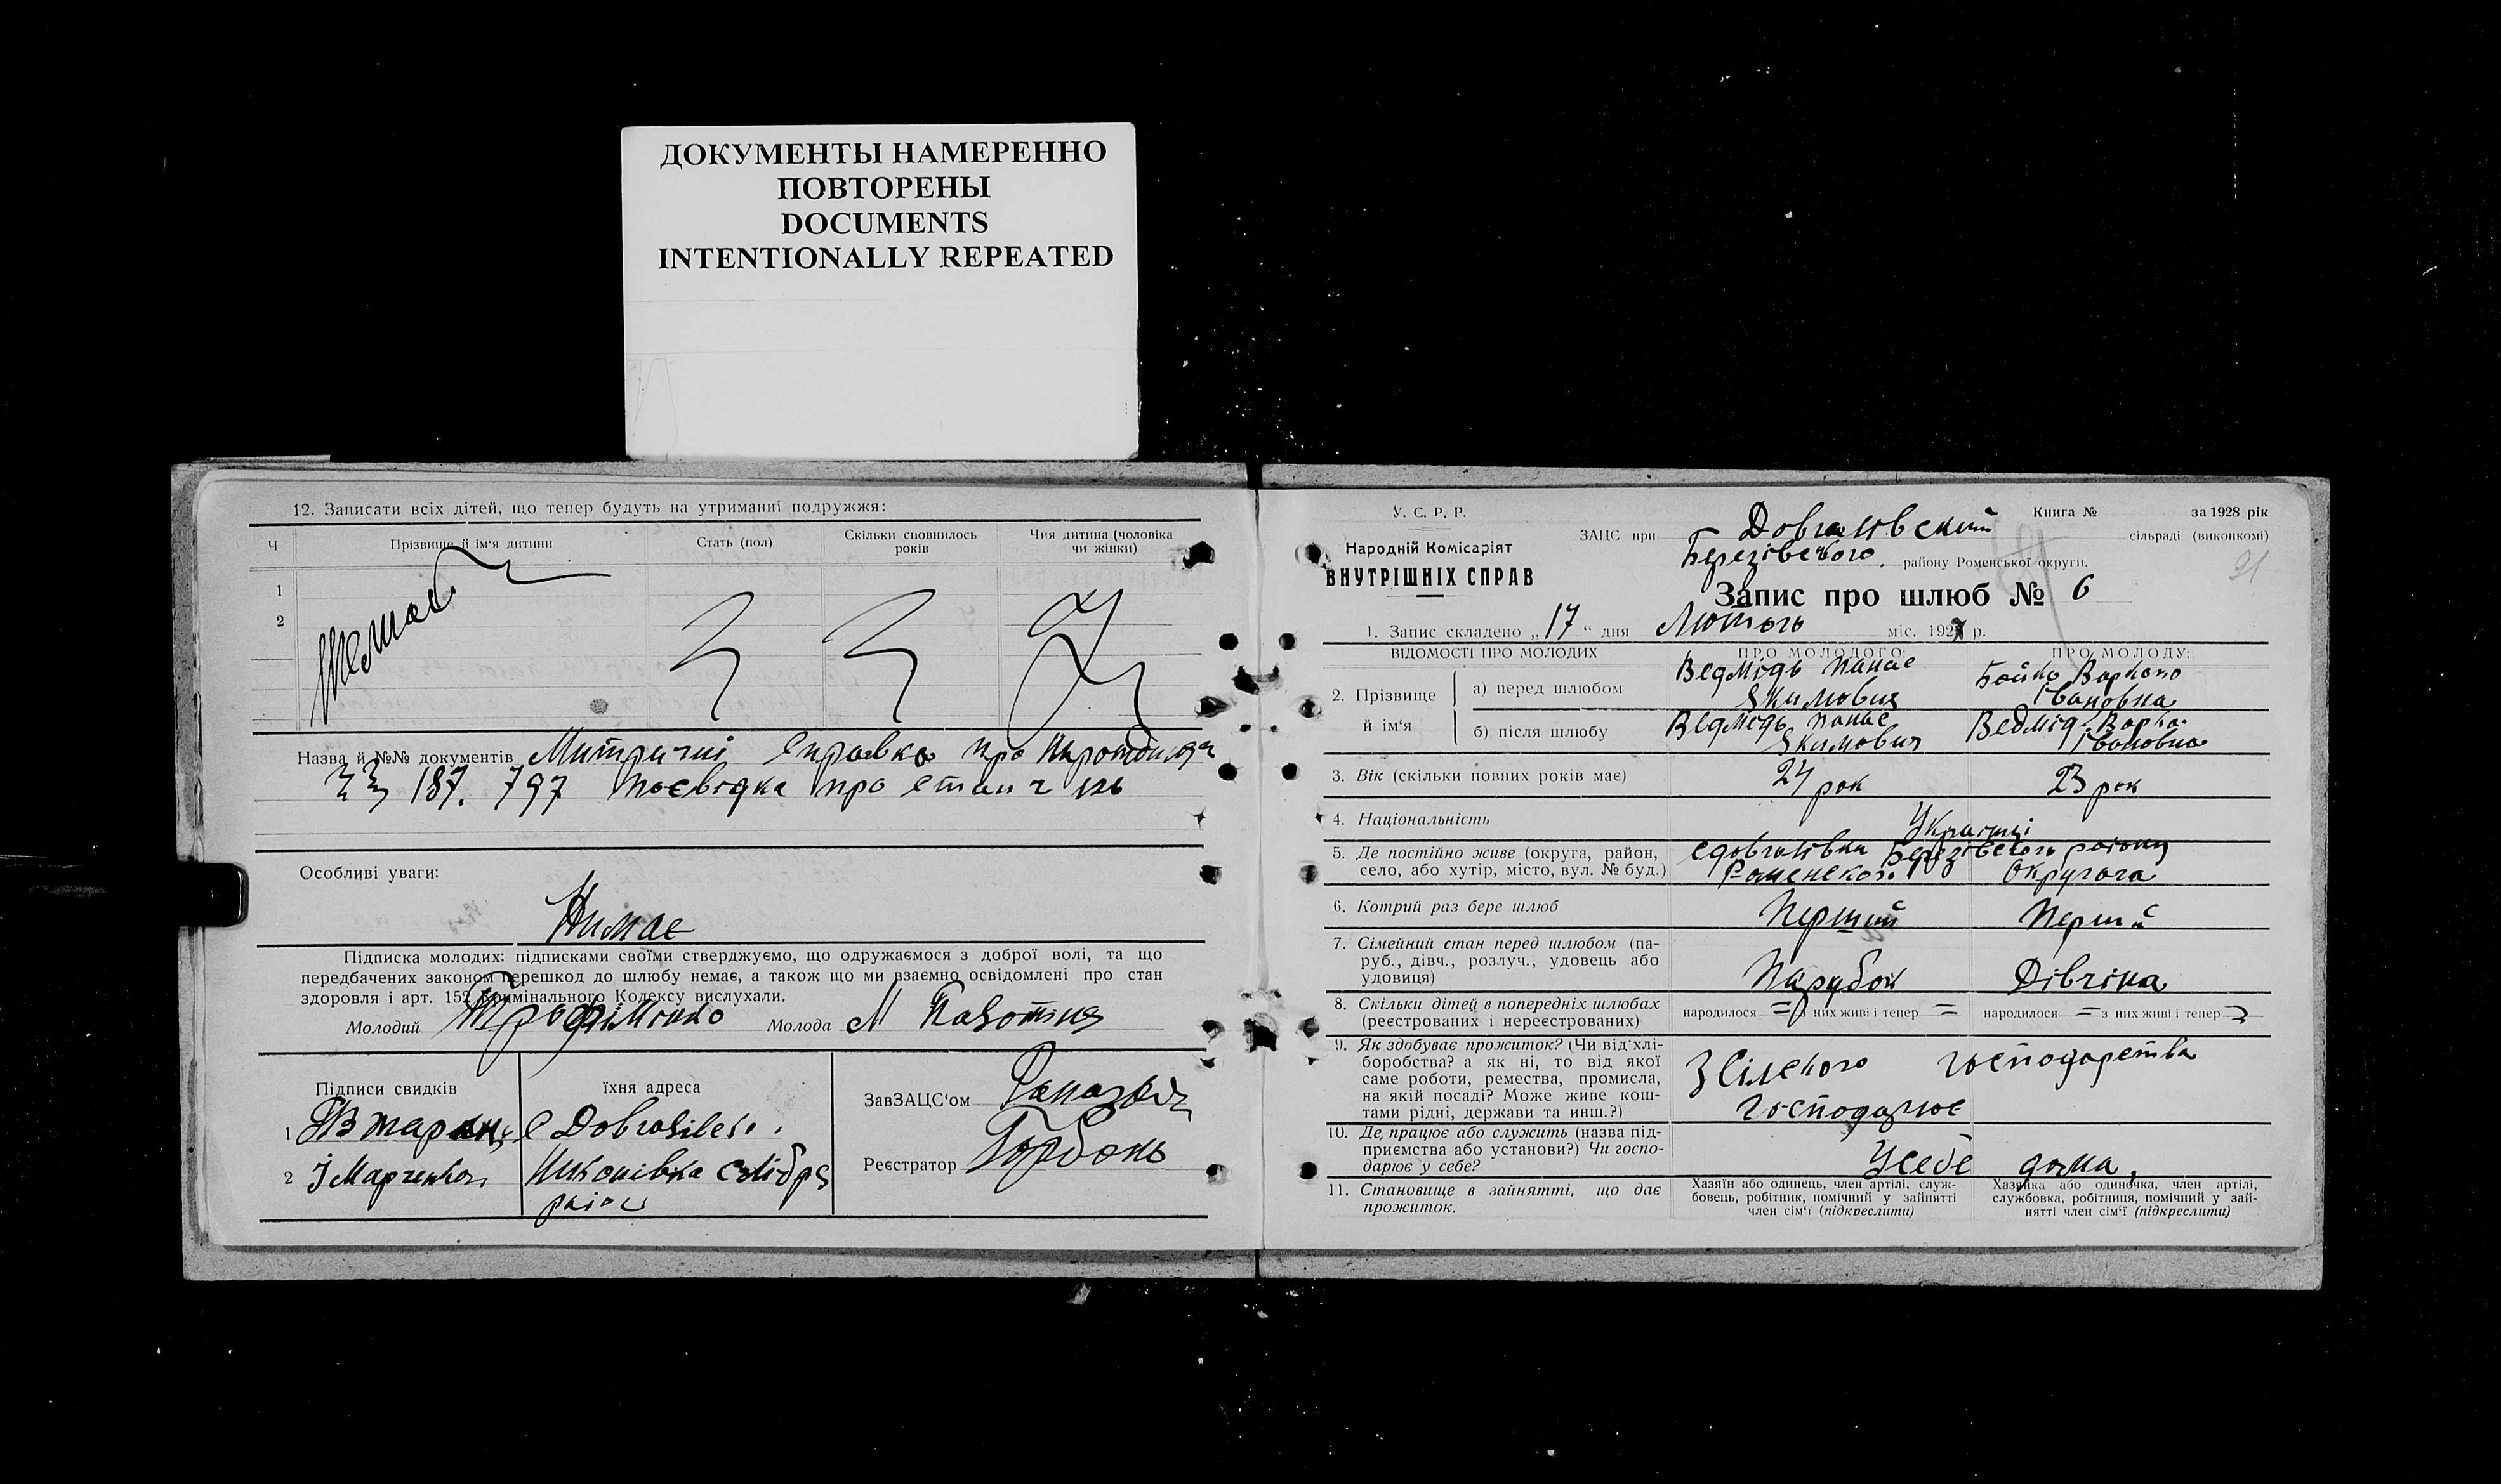 ДОКУМЕНТЫ НАМЕРЕННО
ПОВТОРЕНЫ
DOCUMENTS
INTENTIONALLY REPEATED
12. Записати всіх дітей, що тепер будуть на утриманні подружжя:
Ч
Прізвище й ім'я дитини
Стать (пол)
Скільки сповнилось років
Чия дитина (чоловіка чи жінки)
1
2
Назва й №№ документів Митричні справка про
187. 797 посвідка про стан
Особливі уваги:
Нимає
Підписка молодих: підписками своїми стверджуємо, що одружаємося з доброї волі, та що
передбачених законом перешкод до шлюбу немає, а також що ми взаємно освідомлені про стан
здоров'я і арт. 152 Кримінального Кодексу вислухали.
Молодий Трофіменко Молода М
Підписи свидків
їхня адреса
1
2 І Марченко
район
ЗавЗАЦС'ом
Реєстратор Горбонь
У. С. Р. Р.
Народній Комісаріят
ВНУТРІШНІХ СПРАВ
Книга № за 1928 рік
ЗАЦС при сільраді (виконкомі)
Березівского району Роменської округи.
91
Запис про шлюб № 6
1. Запис складено „17“ дня Лютого міс. 1928 р.
ВІДОМОСТІ ПРО МОЛОДИХ
ПРО МОЛОДОГО:
ПРО МОЛОДУ:
2. Прізвище й ім'я
а) перед шлюбом
Ведмідь Панас Якимович
Бойко Івановна
б) після шлюбу
Ведмідь Панас Якимович
Ведмідь Варка Івановна
3. Вік (скільки повних років має)
24 рок
23 рок
4. Національність
Українці
5. Де постійно живе (округа, район,
село, або хутір, місто, вул. № буд.)
Березівского району
Роменского Округога
6. Котрий раз бере шлюб
Перший
Перший
7. Сімейний стан перед шлюбом (па-
руб., дівч., розлуч., удовець або
удовиця)
Парубок
Дівчіна
8. Скільки дітей в попередніх шлюбах
(реєстрованих і нереєстрованих)
народилося = з них живі і тепер =
народилося = з них живі і тепер
9. Як здобуває прожиток? (Чи від хлі-
боробства? а як ні, то від якої
саме роботи, ремества, промисла,
на якій посаді? Може живе кош-
тами рідні, держави та инш.?)
З Сілского господарства
Господарює
10. Де, працює або служить (назва під-
приємства або установи?) Чи госпо-
дарює у себе?
Усебе дома,
11. Становище в зайнятті, що дає
прожиток.
Хазяїн або одинець, член артілі, служ-
бовець, робітник, помічний у зайнятті
член сім'ї (підкреслити)
Хазяйка або одиночка, член артілі,
службовка, робітниця, помічний у зай-
нятті член сім'ї (підкреслити)